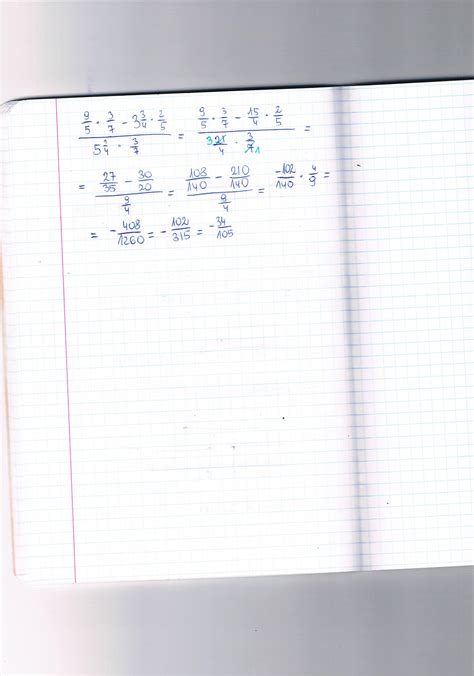 (9/5 · 3/7 - 3 3/4 · 2/5) / (5 1/4 · 3/7) = (9/5 · 3/7 - 15/4 · 2/5) / (3 21/4 · 3/7 1) =
= (27/35 - 30/20) / (9/4) = (108/140 - 210/140) / (9/4) = -102/140 · 4/9 =
= -408/1260 = -102/315 = -34/105